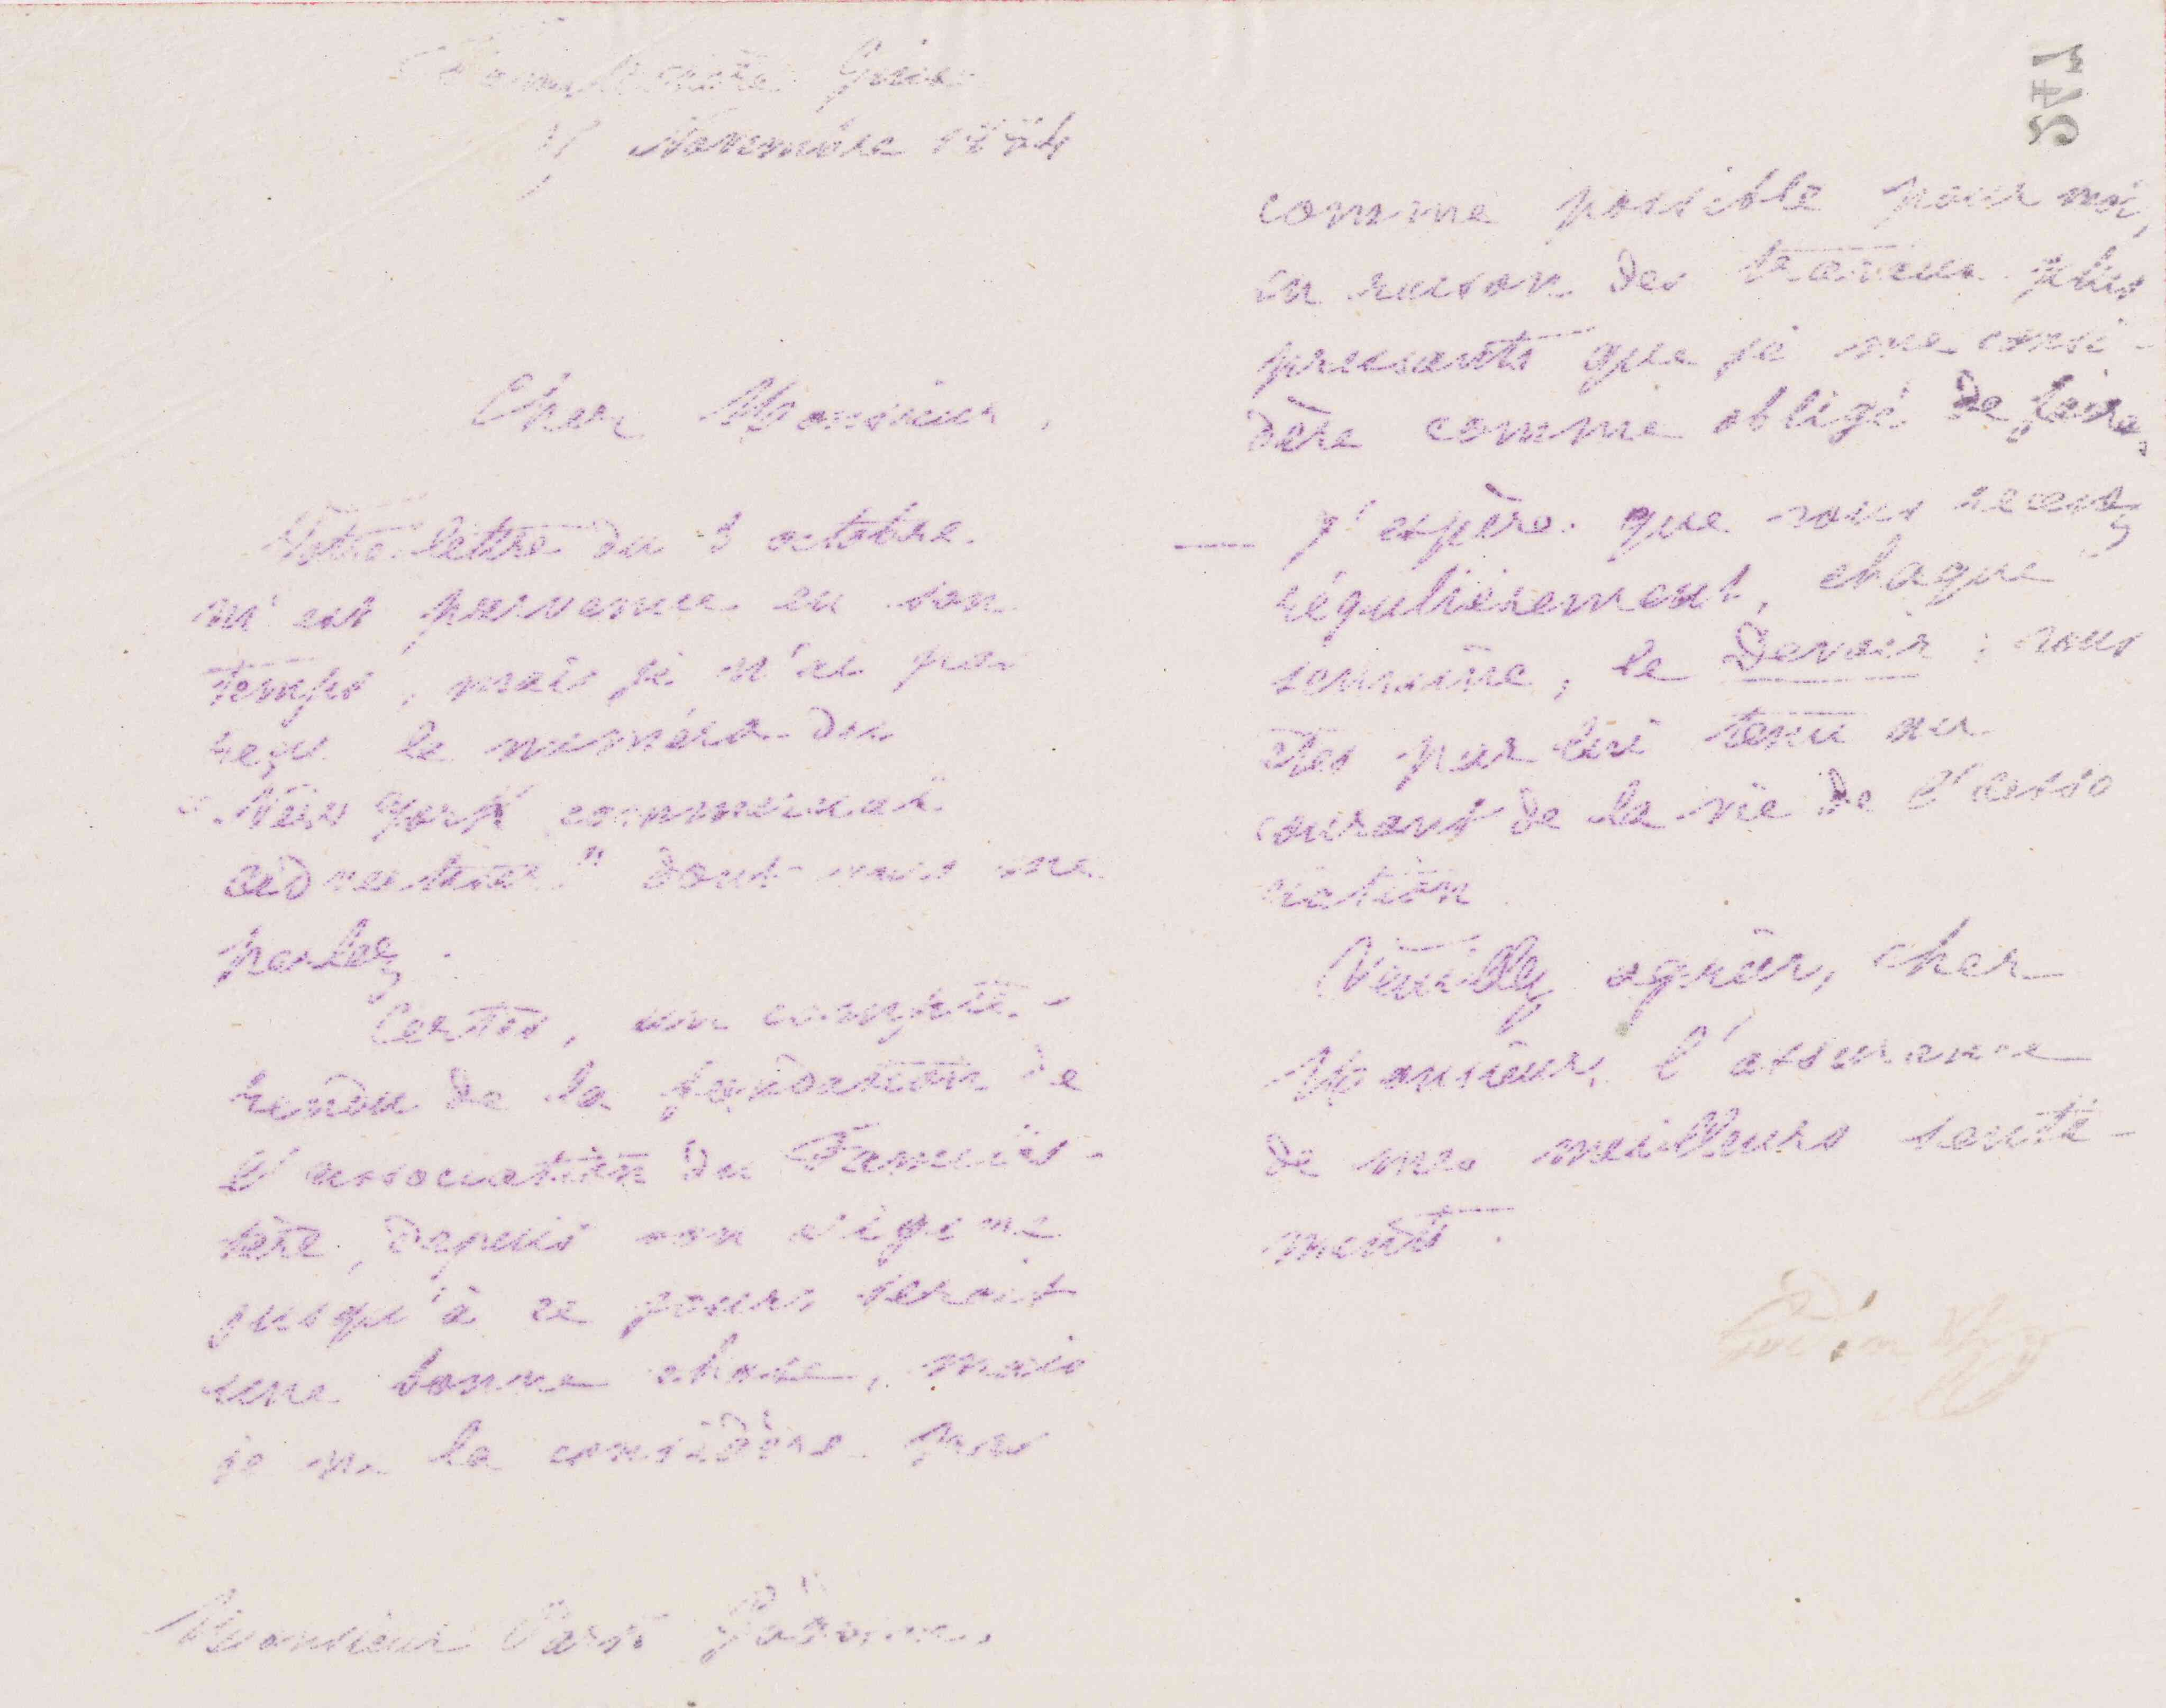 Familistère Guise
Novembre 1884
Cher Monsieur,
Votre lettre du 3 octobre
m'est parvenue en son
temps, mais je n'ai pas
reçu le numéro du
"New York commercial
" dont vous me
parlez.
Certes, un compte-
rendu de la fondation de
l'association du Familis-
tère, depuis son origine
jusqu'à ce jour, serait
une bonne chose, mais
je ne la considère pas
Monsieur
145
comme possible pour moi,
en raison des travaux plus
pressants que je me consi-
dère comme obligé de faire.
— J'espère que vous recevez
régulièrement, chaque
semaine, le Devoir ; vous
êtes par lui tenu au
courant de la vie de l'asso
ciation.
Veuillez agréer, cher
Monsieur, l'assurance
de mes meilleurs senti-
ments.
Godin